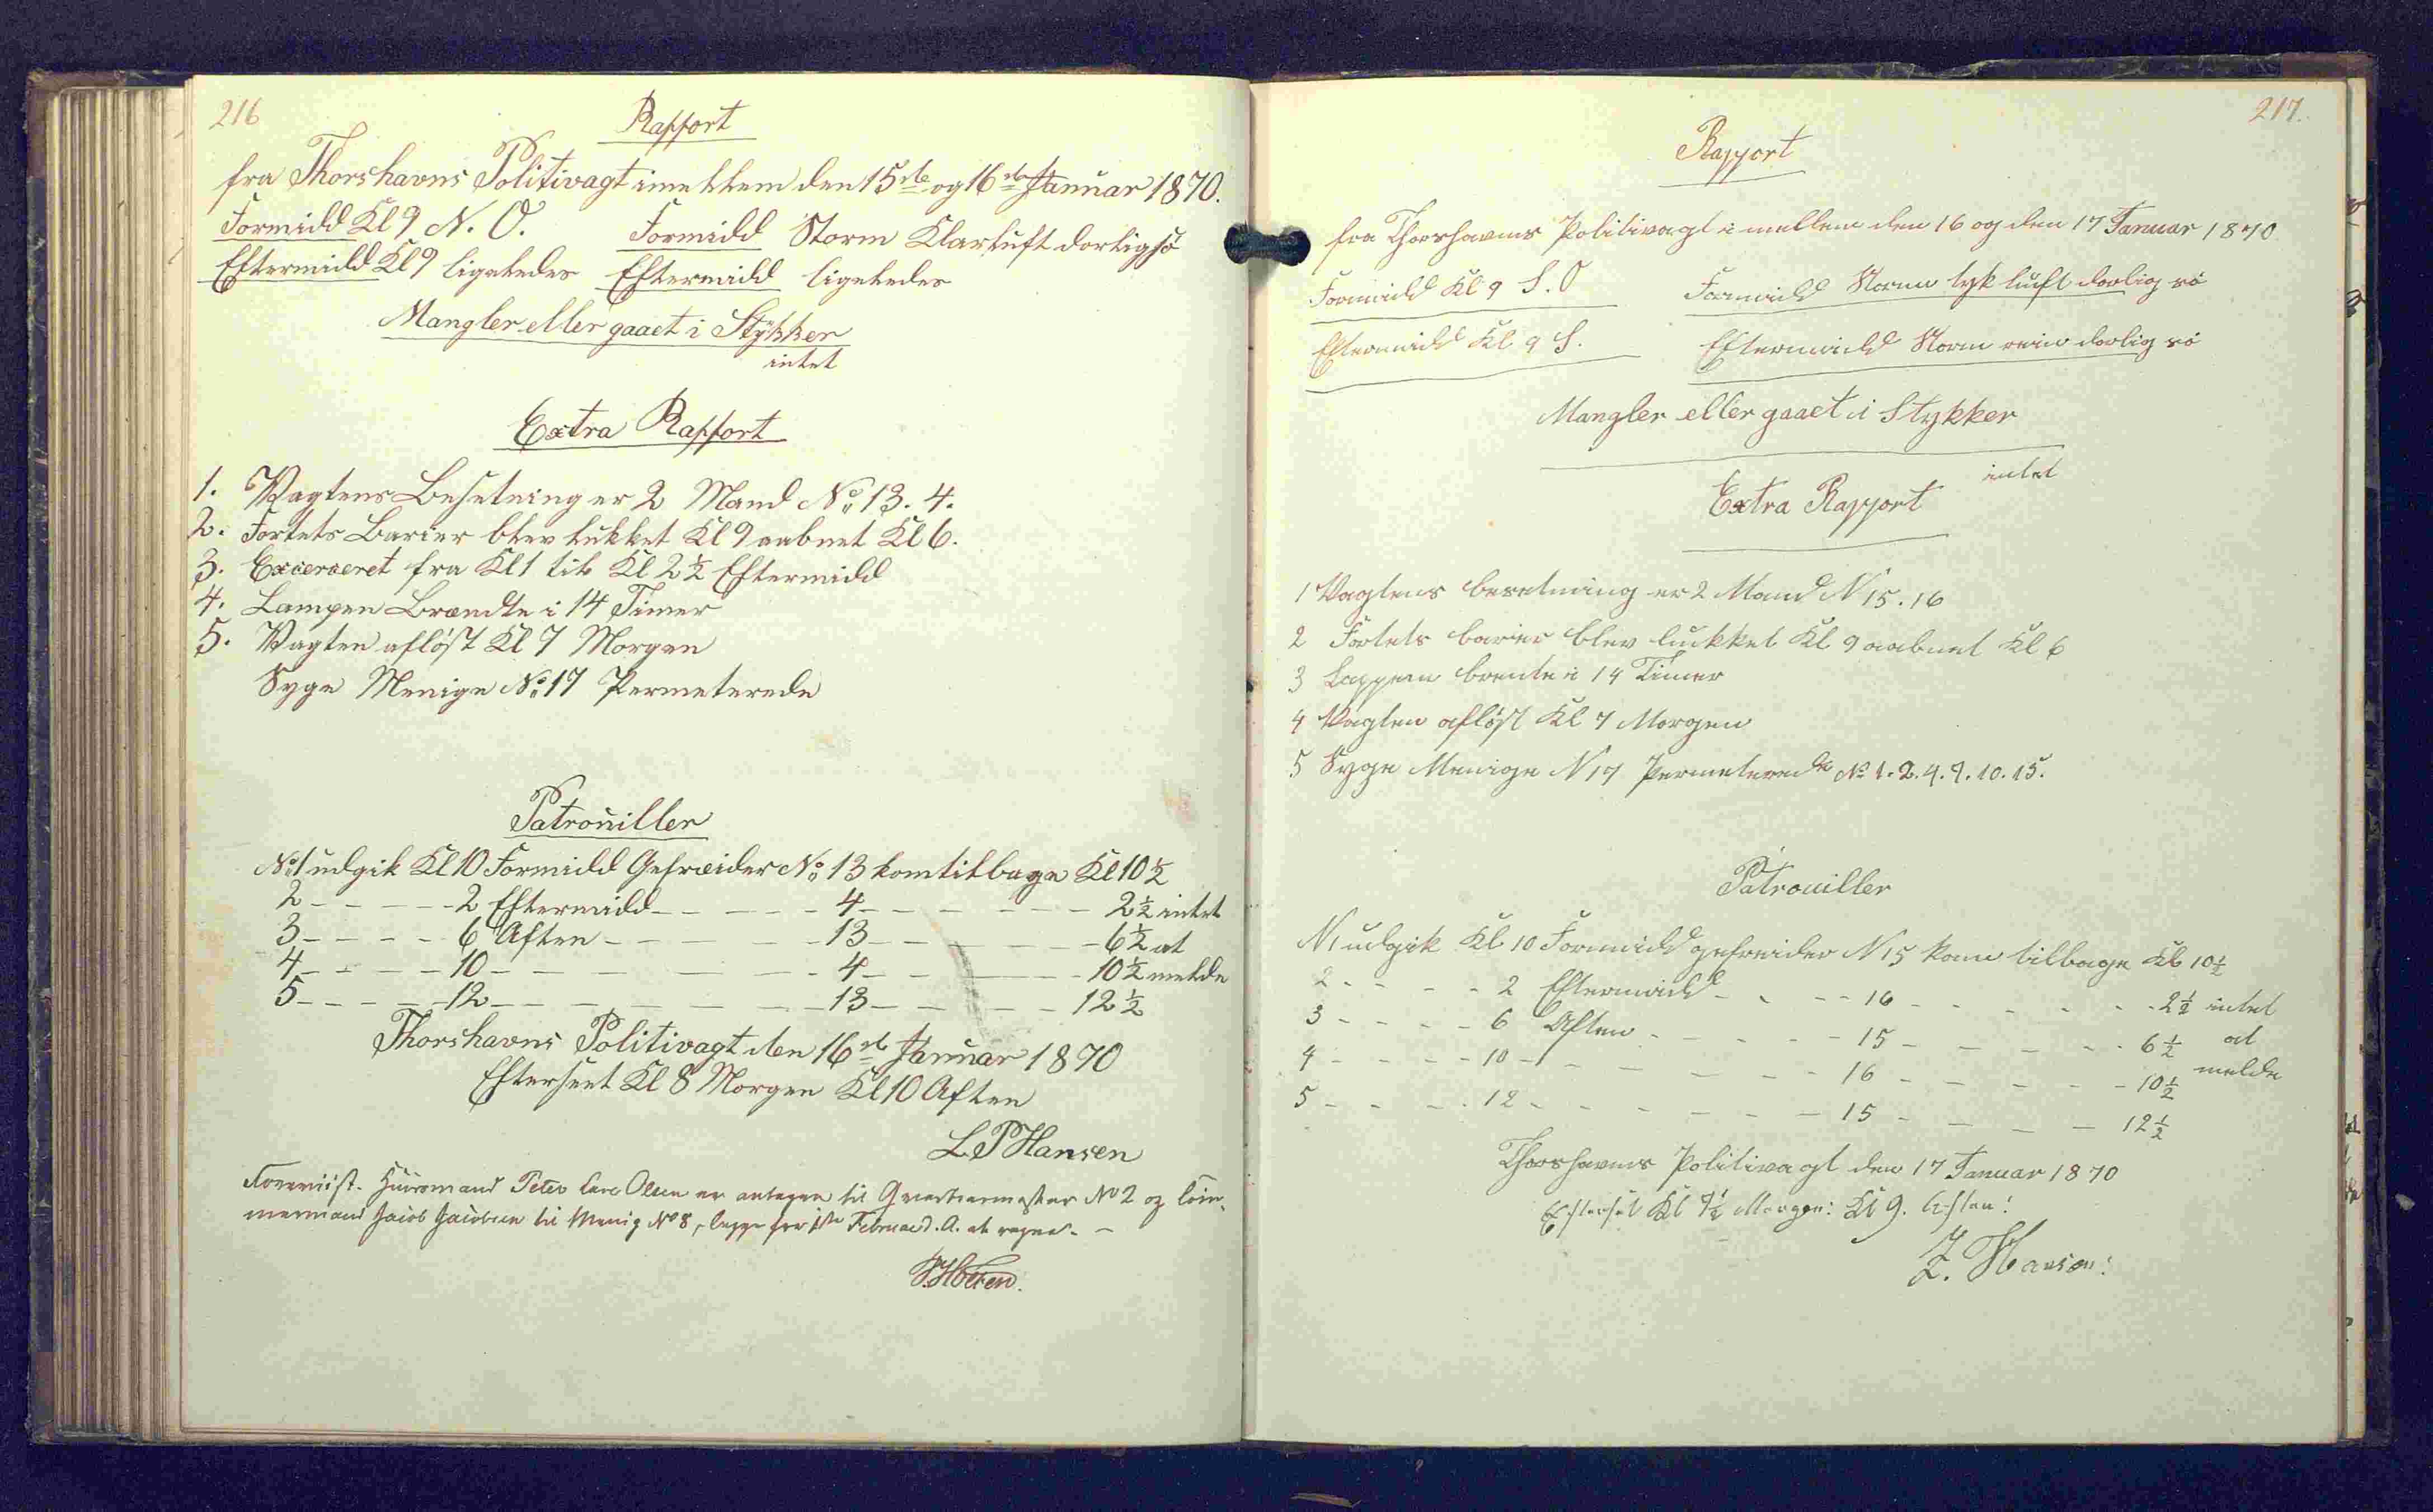 216
Rapport
fra Thorshavns Politivagt imellem den 15de og 16de Januar 1870.
Formidd Kl 9 N. O. Formidd Storm Klarluft dorlig sö
Eftermidd Kl 9 ligeledes Eftermidd ligeledes
Mangler eller gaaet i Stykker
intet
Extra Rapport
1. Vagtens Besetning er 2 Mand No 13. 4.
2. Fortets Barier blev lukket Kl 9 aabnet Kl 6.
3. Excerseret fra Kl 1 til Kl 2½ Eftermidd
4. Lampen Brændte i 14 Timer
5. Vagten aflöst Kl 7 Morgen
Syge Menige No 17 Permeterede
Patrouiller
No 1 udgik Kl 10 Formidd Gefreider No 13 kom tilbage Kl 10½
2 - - - - - 2 Eftermidd - - - - - 4 - - - - - - 2½ intet
3 - - - - 6 Aften - - - - - - 13 - - - - - - 6½ at
4 - - - - - 10 - - - - - - - 4 - - - - - 10½ melde
5 - - - - - 12 - - - - - - - 13 - - - - - 12½
Thorshavns Politivagt den 16de Januar 1870
Efterseet Kl 8 Morgen Kl 10 Aften
L P Hansen
Huusmand Peter Olsen er antagen til Qvarteermester No 2 og
Jacob Jacobsen til Menig No 8, begge fra 1ste Februar d. A. at regne. -
217.
Rapport
fra Thorshavns Politivagt i mellem den 16 og den 17 Januar 1870
Formidd Kl 9 S. O Formidd Storm tyk luft dorlig sö
Eftermidd Kl 9 S. Eftermidd Storm rein dorlig sö
Mangler eller gaaet i Stykker
intet
Extra Rapport
1 Vagtens besetning er 2 Mand N 15. 16
2 Fortets barier blev lukket Kl 9 aabnet Kl 6
3 Lappen brente i 14 Timer
4 Vagten aflöst Kl 7 Morgen
5 Syge Menige N 17 Permeterede No 1. 2. 4. 9. 10. 15.
Patrouiller
N 1 udgik Kl 10 Formidd gefreider N 15 kom tilbage Kl 10½
2 - - - - 2 Eftermidd - - - - 16 - - - - - - 2½ intet
3 - - - - 6 Aften - - - - - 15 - - - - - 6½ at
4 - - - - 10 - - - - - - 16 - - - - - 10½ melde
5 - - - - 12 - - - - - - 15 - - - - 12½
Thorshavns Politivagt den 17 Januar 1870
Efterset Kl 7½ Morgen: Kl 9. Aften!
Z. Hansen: